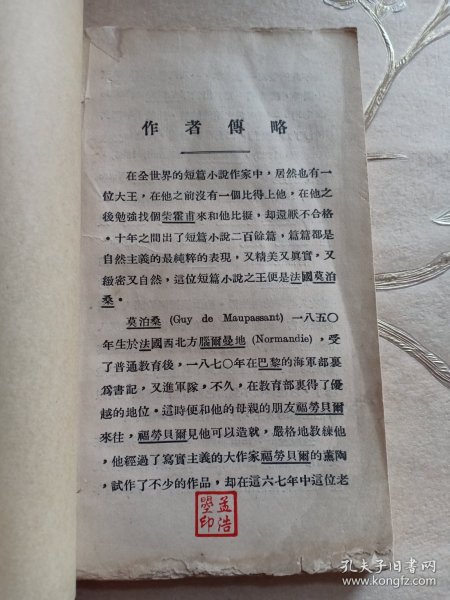 作者傳略
在全世界的短篇小說作家中，居然也有一
位大王，在他之前沒有一個比得上他，在他之
後勉強找個柴霍甫來和他比擬，却還厭不合格
。十年之間出了短篇小說二百餘篇，篇篇都是
自然主義的最純粹的表現，又精美又眞實，又
緻密又自然，這位短篇小說之王便是法國莫泊
桑。
莫泊桑 (Guy de Maupassant) 一八五〇
年生於法國西北方腦爾曼地 (Normandie)，受
了普通教育後，一八七〇年在巴黎的海軍部裏
爲書記，又進軍隊，不久，在教育部裏得了優
越的地位。這時便和他的母親的朋友福勞貝爾
來往，福勞貝爾見他可以造就，嚴格地教練他
，他經過了寫實主義的大作家福勞貝爾的薰陶
，試作了不少的作品，却在這六七年中這位老
孟浩
印
孔夫子旧书网
www.kongfz.com